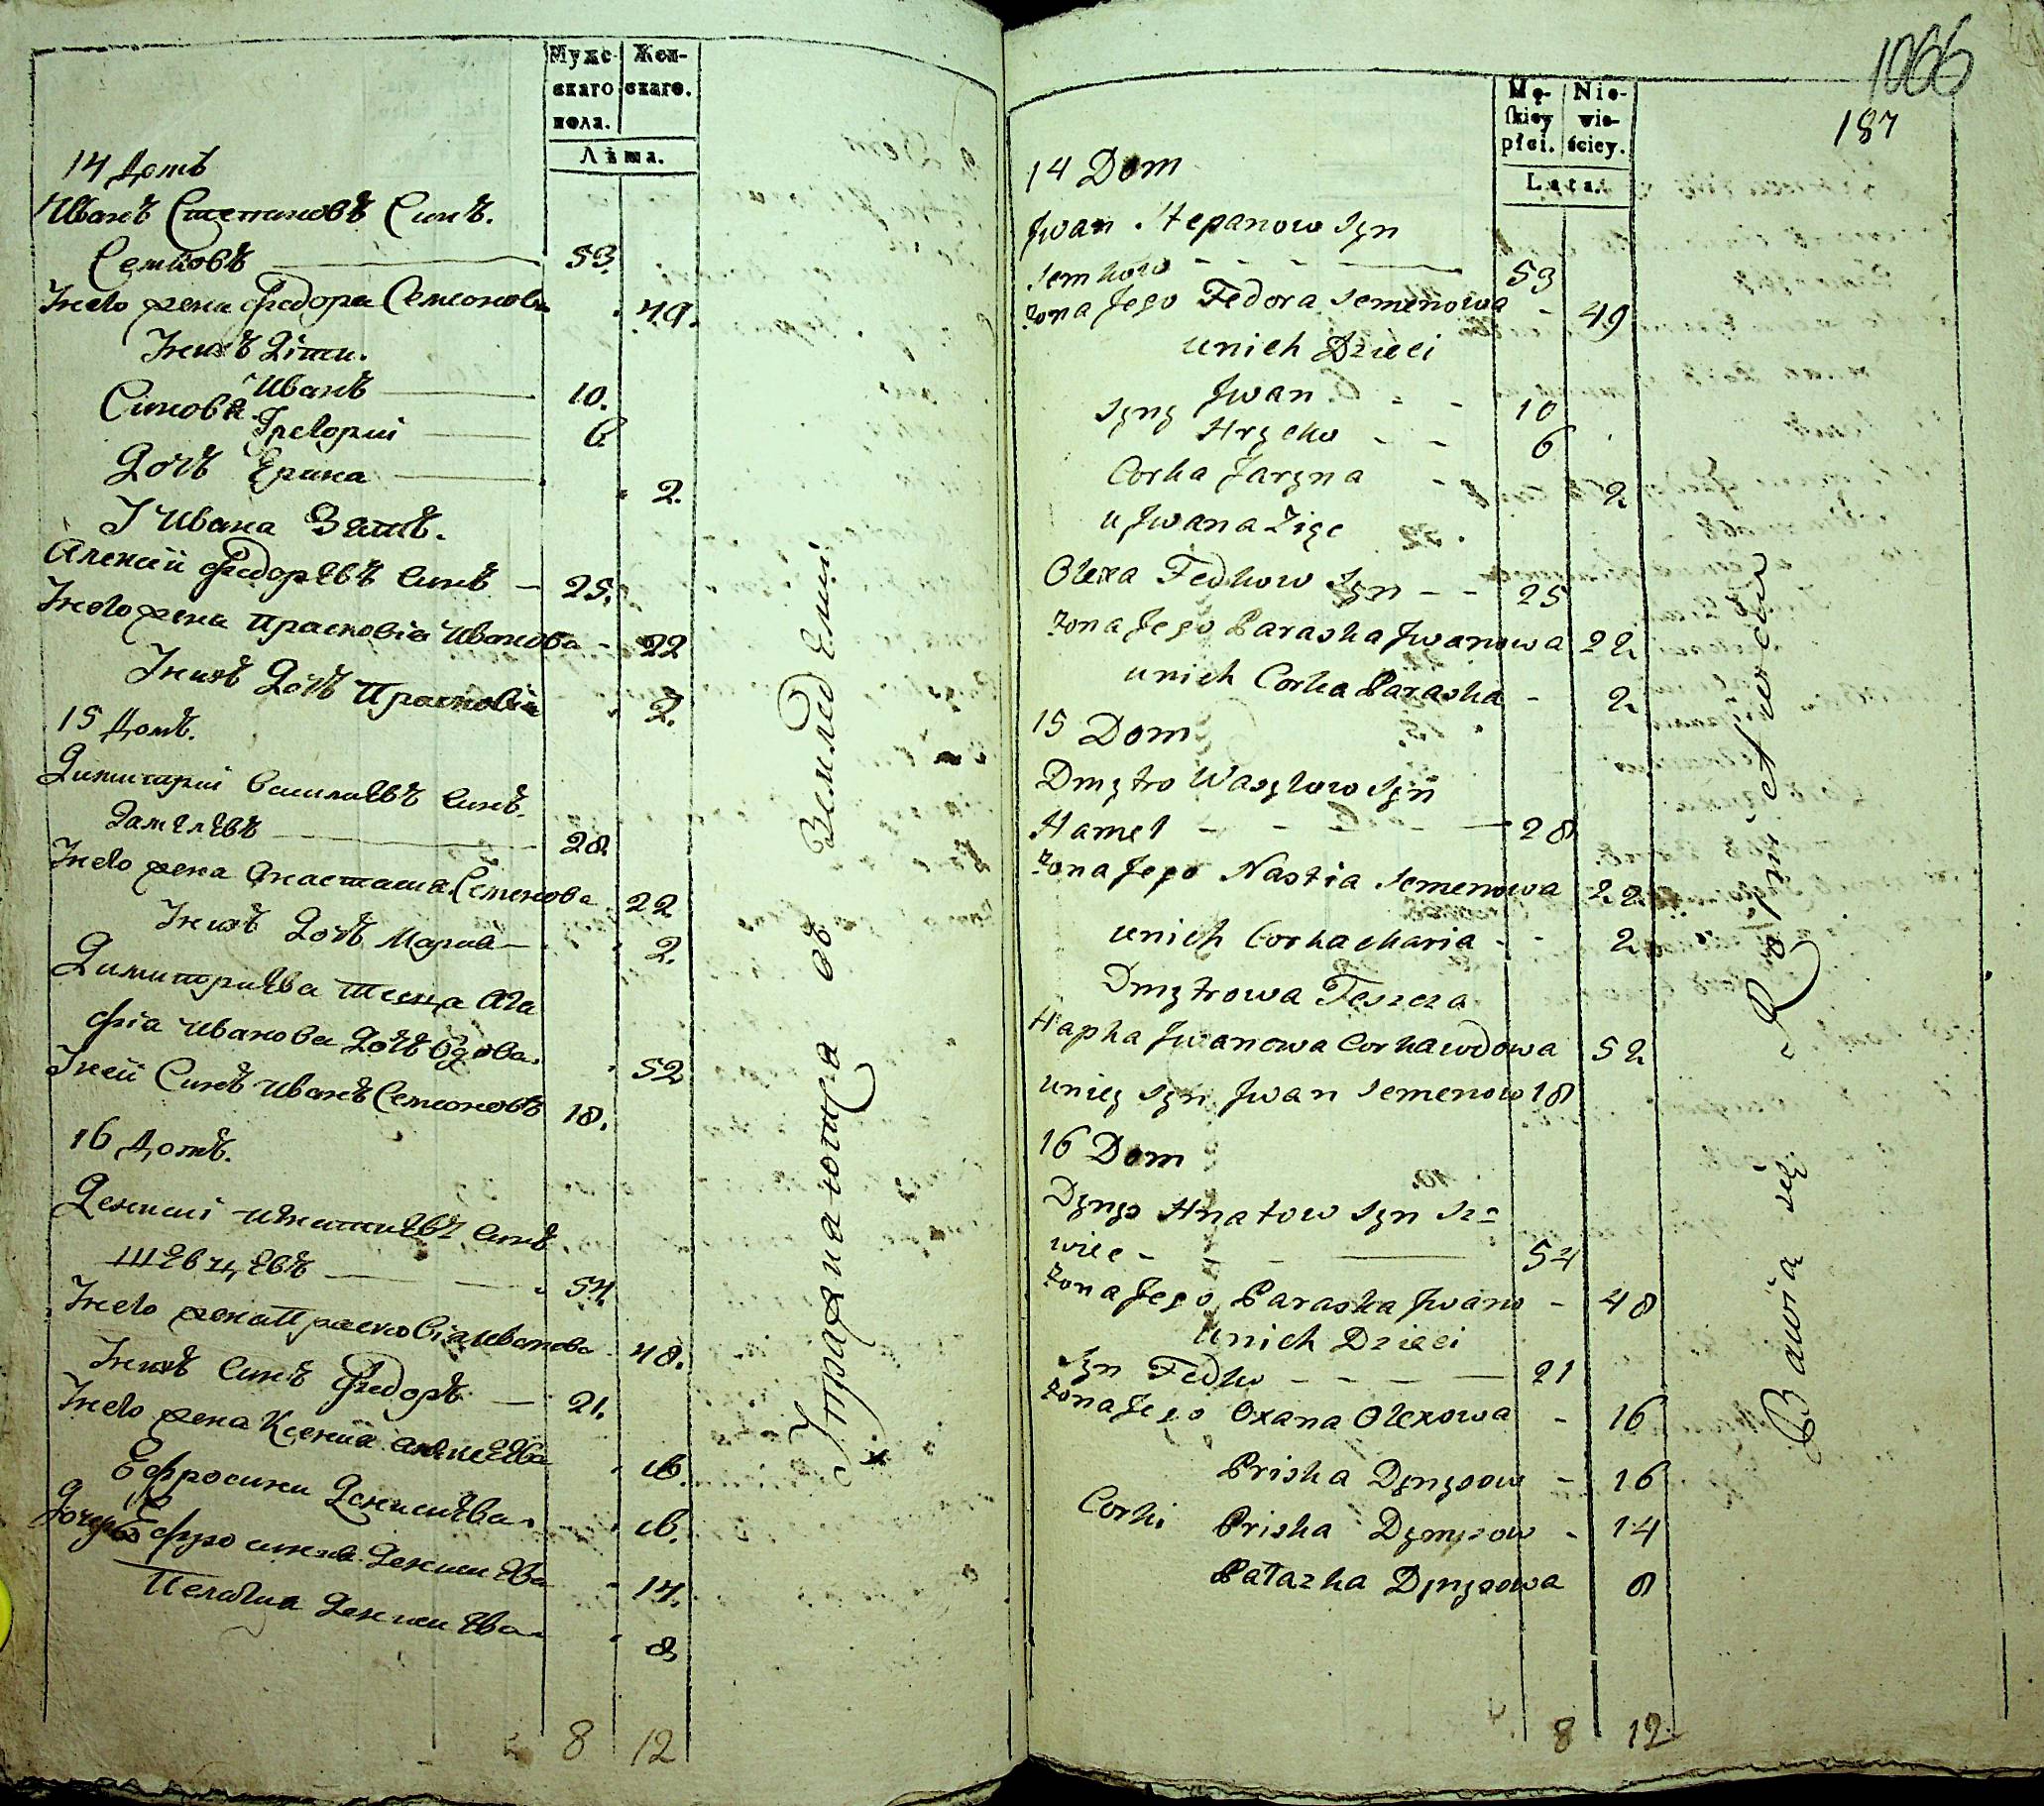 Мужс- Жен-
скаго скаго.
пола.
Лѣта.
14 Домъ
Иванъ Степановъ Синъ.
Семковъ 53.
Унего жена Федора Семионова 49.
Унихъ Діти.
Синовя Иванъ 10.
Григорий 6.
Дочъ Ерина 2.
У Ивана Зять.
Алексій Федорѣвъ синъ 25.
Унего жена Прасковіа Иванова 22
Унихъ Дочъ Прасковія 2.
15 Домъ.
Димитрій Василиевъ синъ.
28.
Унего жена Анастасиа Семенова 22
Унихъ Дочъ Мариа 2.
Димитриѣва Теща Ага
фіа Иванова Дочъ Вдова 52
Уней Синъ Иванъ Семионовъ 18.
16 Домъ.
Денисий Игнатиевъ синъ
Шевцевъ 54.
Унего жена Прасковіа Иванова 48.
Унихъ Синъ Федоръ 21.
Унего жена Ксения 16.
Ефросини Денисиѣва 16.
Дочери Ефросиния Денисиѣва 14.
Пелагиа Денисиѣва 8
8 12
Упражнаютца въ Земледелиі
1066
187
Mę- Nie-
skiey wie-
płci. ściey.
Lata.
14 Dom
Jwan Stepanow Syn
Semkow 53
Zona Jego Fedora Semenowa 49
unich Dzieci
Syny Jwan 10
Hrycko 6
Corka Jaryna 2
u Jwana Zięc
Olexa Fedkow Syn 25
Zona Jego Paraska Jwanowa 22
unich Corka Paraska 2
15 Dom
Dmytro Wasylow Syn
Hamel 28
Zona Jego Nastia Semenowa 22
unich Corka Maria 2
Dmytrowa Teszcza
Hapka Jwanowa Corka wdowa 52
uniey Syn Jwan Semenow 18
16 Dom
Dynys Hnatow Syn Sz=
wiec 54
Zona Jego Paraska Jwano 48
unich Dzieci
Syn Fedko 21
Zona Jego Oxana Olexowa 16
Priska Dynysow 16
Corki Priska Dynysow 14
Pałazka Dynysowa 8
8 12
Bawią się Rolnictwem